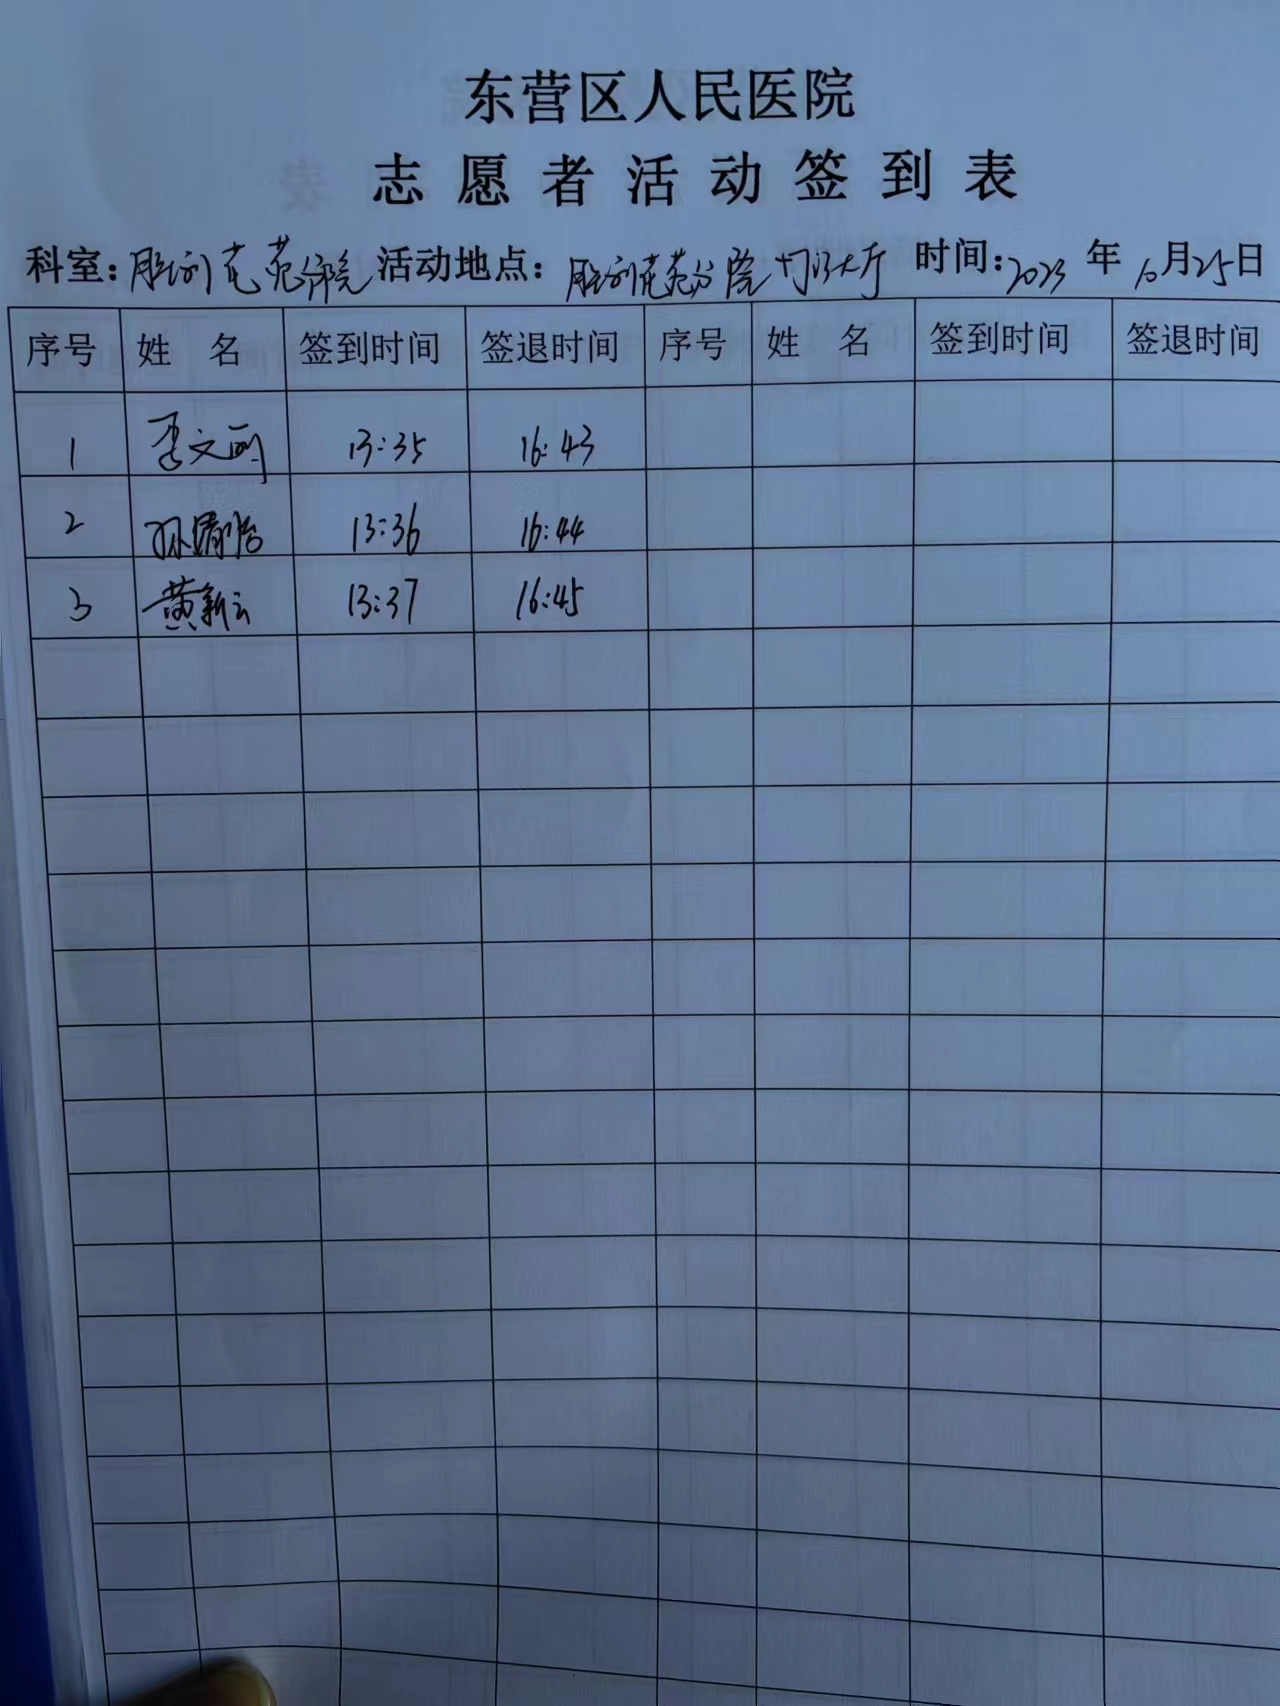 东营区人民医院
志愿者活动签到表
科室：胜利花苑分院 活动地点：胜利花苑分院门诊大厅 时间：2023 年 10月25日
序号 姓 名 签到时间 签退时间 序号 姓 名 签到时间 签退时间
1 李文丽 13:35 16:43
2 孙婧怡 13:36 16:44
3 黄新云 13:37 16:45